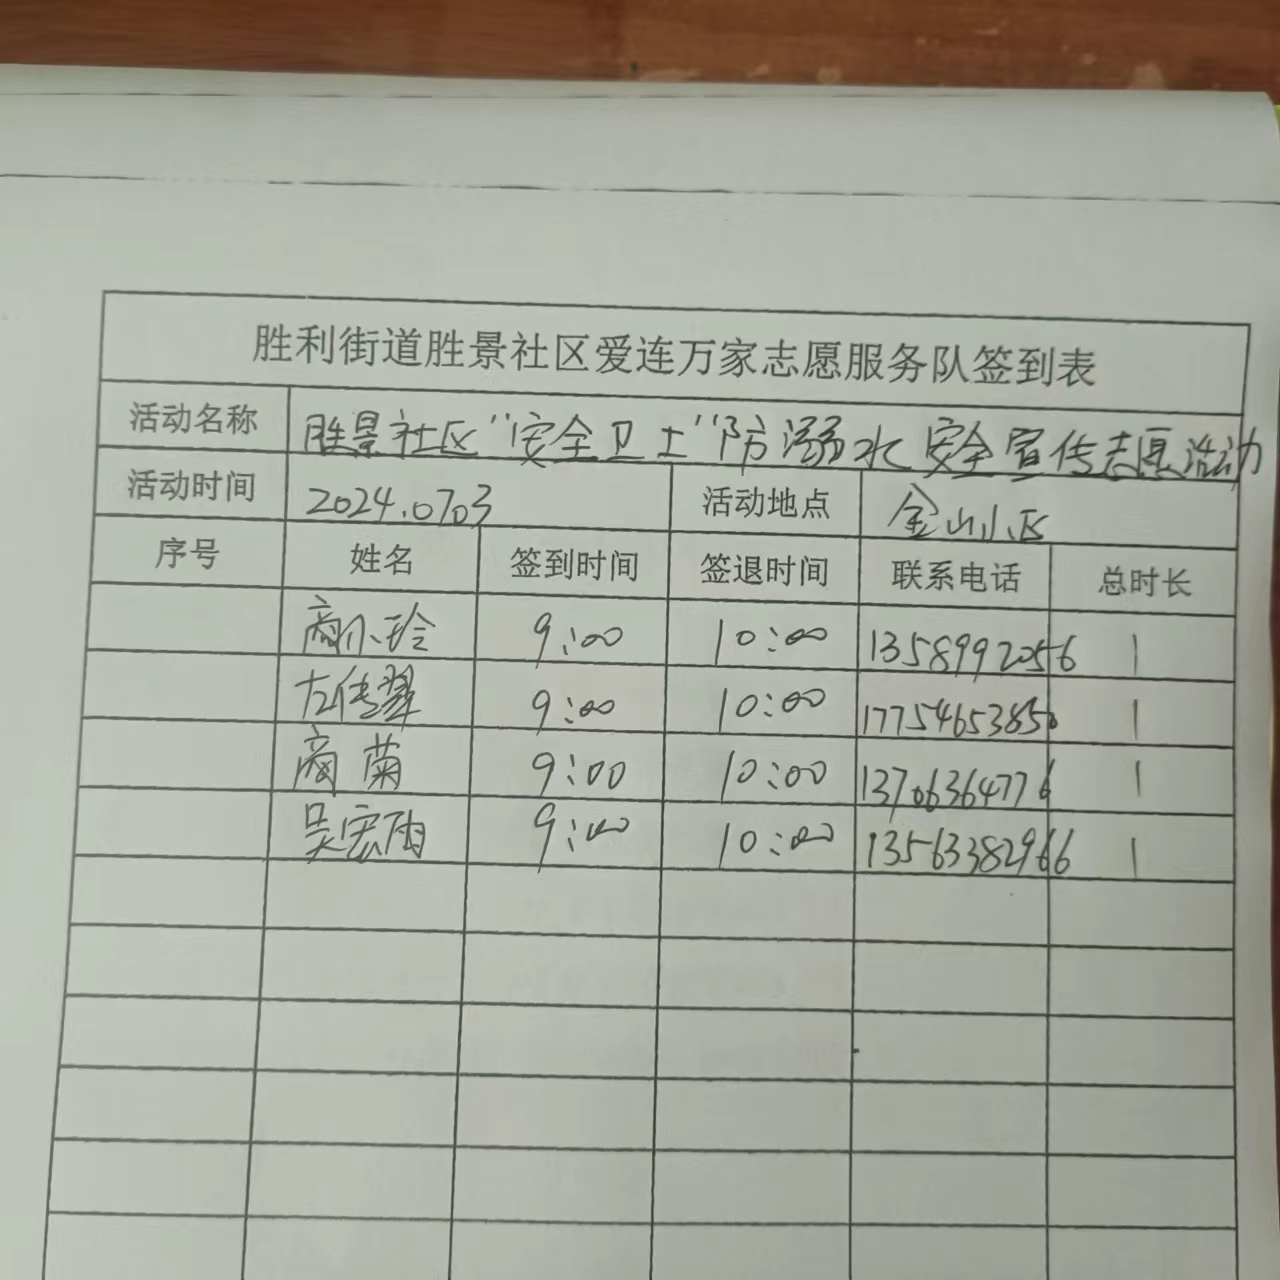 胜利街道胜景社区爱连万家志愿服务队签到表
活动名称 胜景社区“安全卫士”防溺水安全宣传志愿活动
活动时间 2024.0703 活动地点 金山小区
序号 姓名 签到时间 签退时间 联系电话 总时长
商小玲 9:00 10:00 13589992056 1
左传翠 9:00 10:00 17754653850 1
商菊 9:00 10:00 13706364776 1
吴宏雨 9:00 10:00 13563382966 1